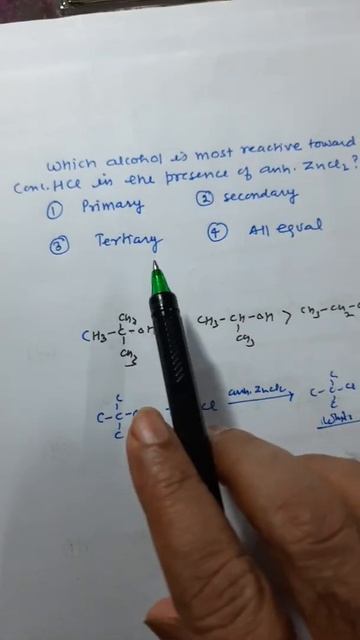 Which alcohol is most reactive toward
Conc. HCl in the presence of anh. ZnCl2?
① Primary ② secondary
③ Tertiary ④ All equal
CH3
CH3-C-OH CH3-CH-OH > CH3-CH2-
CH3 CH3
C C
C-C- Cl anh. ZnCl2 C-C-Cl
C C